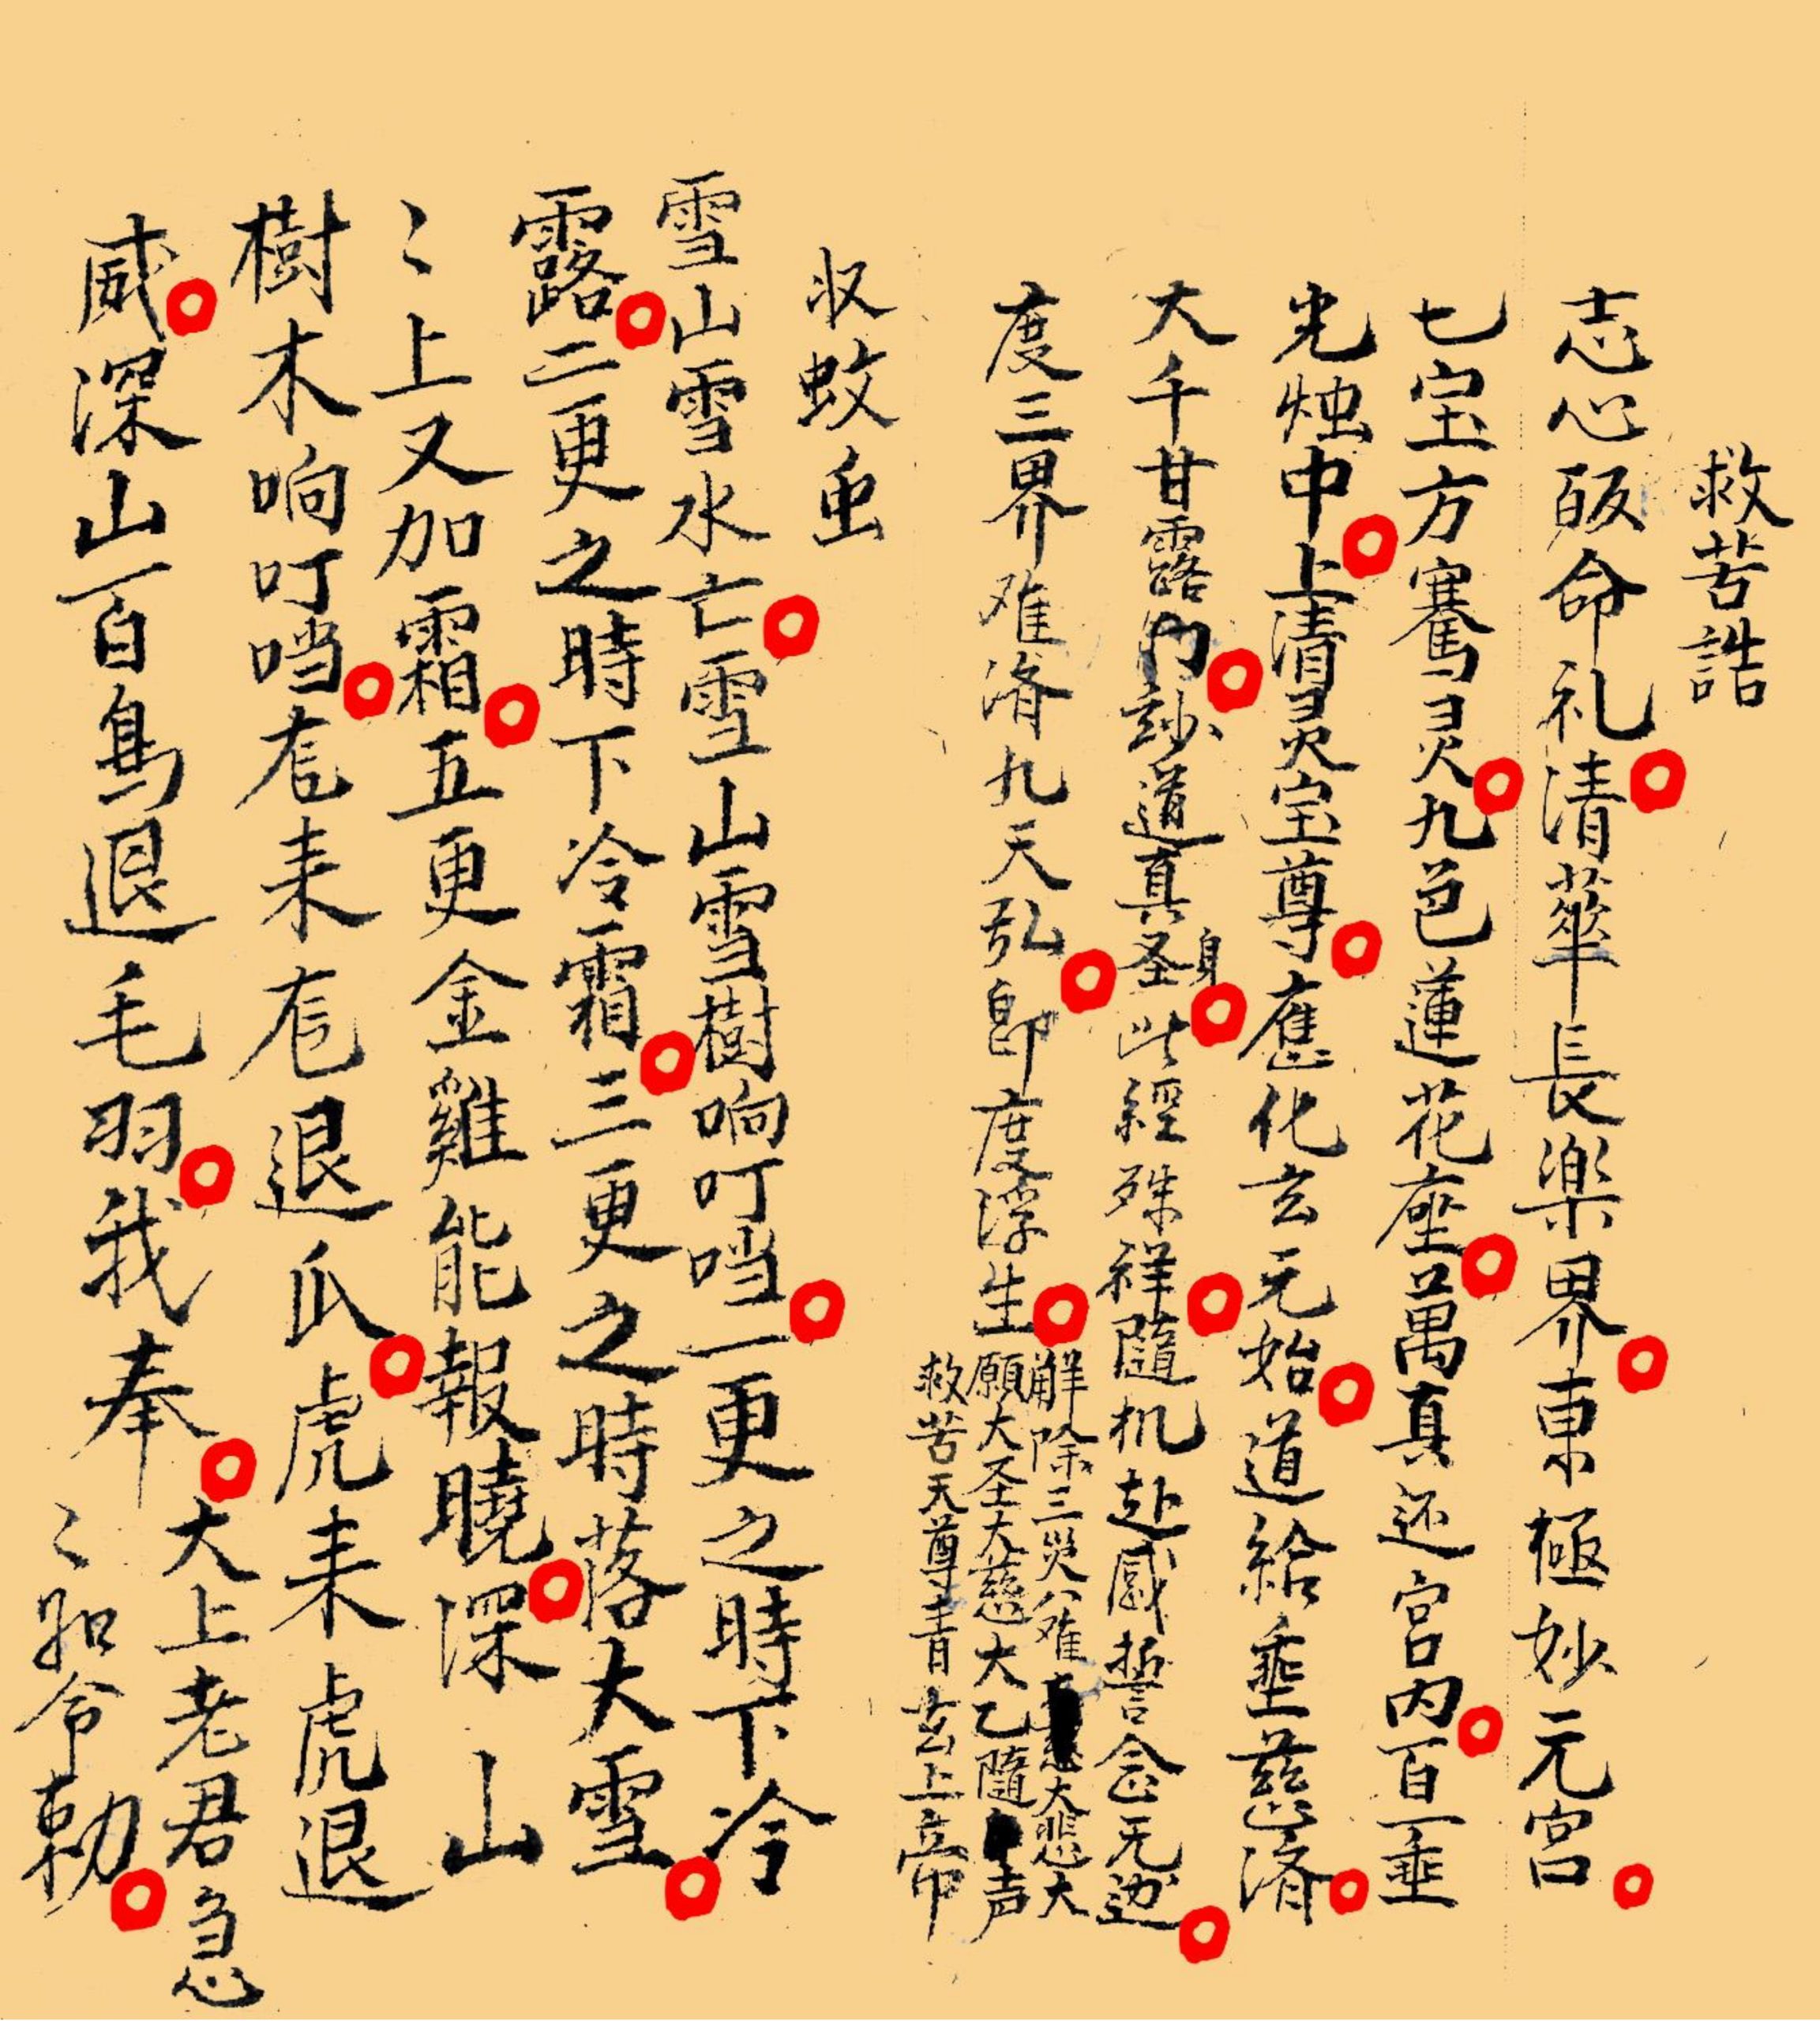 救苦誥
志心皈命礼清華長樂界東極妙元宮
七宝方騫灵九色蓮花座萬真还宮内百一垂
光烛中上清灵宝尊應化玄元始道給垂慈済
大千甘露門玅道真圣身此經殊祥隨机赴感誓念无边
度三界难済九天弘即度浮生
解除三災八难大悲大
願大圣大慈大乙隨声
救苦天尊青玄上帝
収蚊虫
雪山雪水亡雪山雪樹响叮噹一更之時下冷
露二更之時下冷霜三更之時落大雪
〻上又加霜五更金雞能報曉深山
樹木响叮噹㡯来㡯退爪虎来虎退
威深山百鳥退毛羽我奉大上老君急
〻如令勅